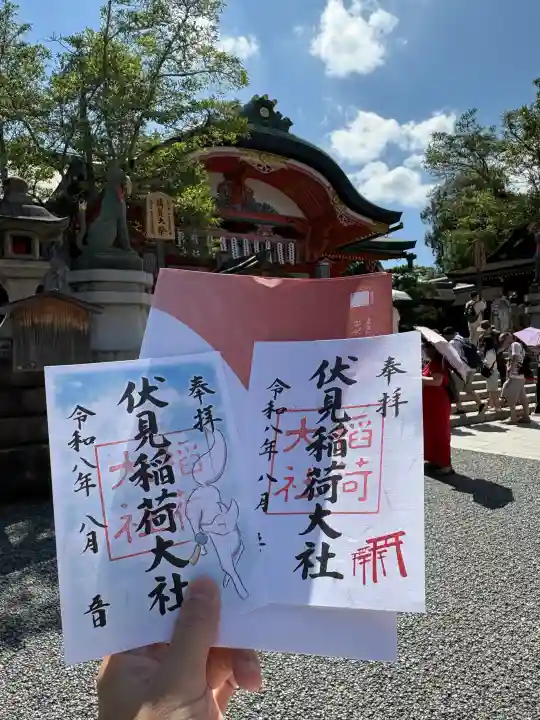 奉拝
伏見稲荷大社
稲荷
大社
令和八年 八月
音
奉拝
伏見稲荷大社
稲荷
大社
令和八年八月